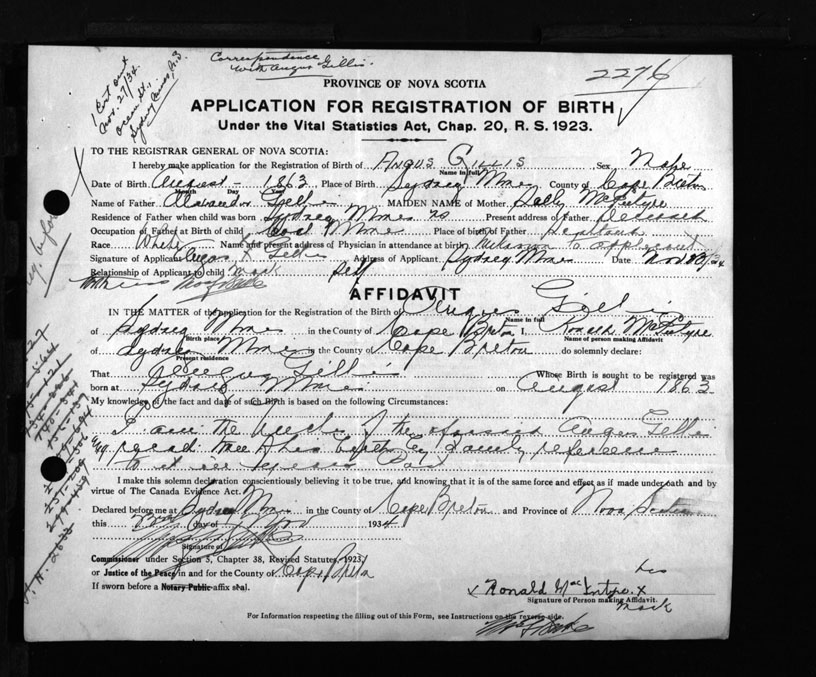 Correspondence
with Angus Gillis
2276
1 Cert out
Nov. 27/34
Ocean St.,
Sydney Mines, N.S
PROVINCE OF NOVA SCOTIA
APPLICATION FOR REGISTRATION OF BIRTH
Under the Vital Statistics Act, Chap. 20, R. S. 1923.
TO THE REGISTRAR GENERAL OF NOVA SCOTIA:
I hereby make application for the Registration of Birth of Angus Gillis Sex Male
Name in full
Date of Birth August - 1863 Place of Birth Sydney Mines County of Cape Breton
Month Day Year
Name of Father Alexander Gillis MAIDEN NAME of Mother Sally McIntyre
Residence of Father when child was born Sydney Mines NS Present address of Father Deceased
Occupation of Father at Birth of child Coal Mine Place of birth of Father Scotland
Race White Name and present address of Physician in attendance at birth Unknown to applicant
Signature of Applicant Angus X Gillis Address of Applicant Sydney Mines Date Nov
Relationship of Applicant to child mark self
Witness
AFFIDAVIT
IN THE MATTER of the application for the Registration of the Birth of Angus Gillis
Name in full
of Sydney Mines in the County of Cape Breton I, Ronald McIntyre
Birth place Name of person making Affidavit
of Sydney Mines in the County of Cape Breton do solemnly declare:
Present residence
That Angus Gillis Whose Birth is sought to be registered was
born at Sydney Mines on August 1863
My knowledge of the fact and date of such Birth is based on the following Circumstances:
I am the Uncle of the aforesaid Angus Gillis
his birth by family reference
I make this solemn declaration conscientiously believing it to be true, and knowing that it is of the same force and effect as if made under oath and by
virtue of The Canada Evidence Act.
Declared before me at Sydney Mines in the County of Cape Breton and Province of Nova Scotia
this day of Nov 1934
Signature of
Commissioner under Section 5, Chapter 38, Revised Statutes, 1923,
or Justice of the Peace in and for the County of Cape Breton
If sworn before a Notary Public affix seal.
his
x Ronald MacIntyre x
Signature of Person making Affidavit.
mark
For Information respecting the filling out of this Form, see Instructions on the reverse side.